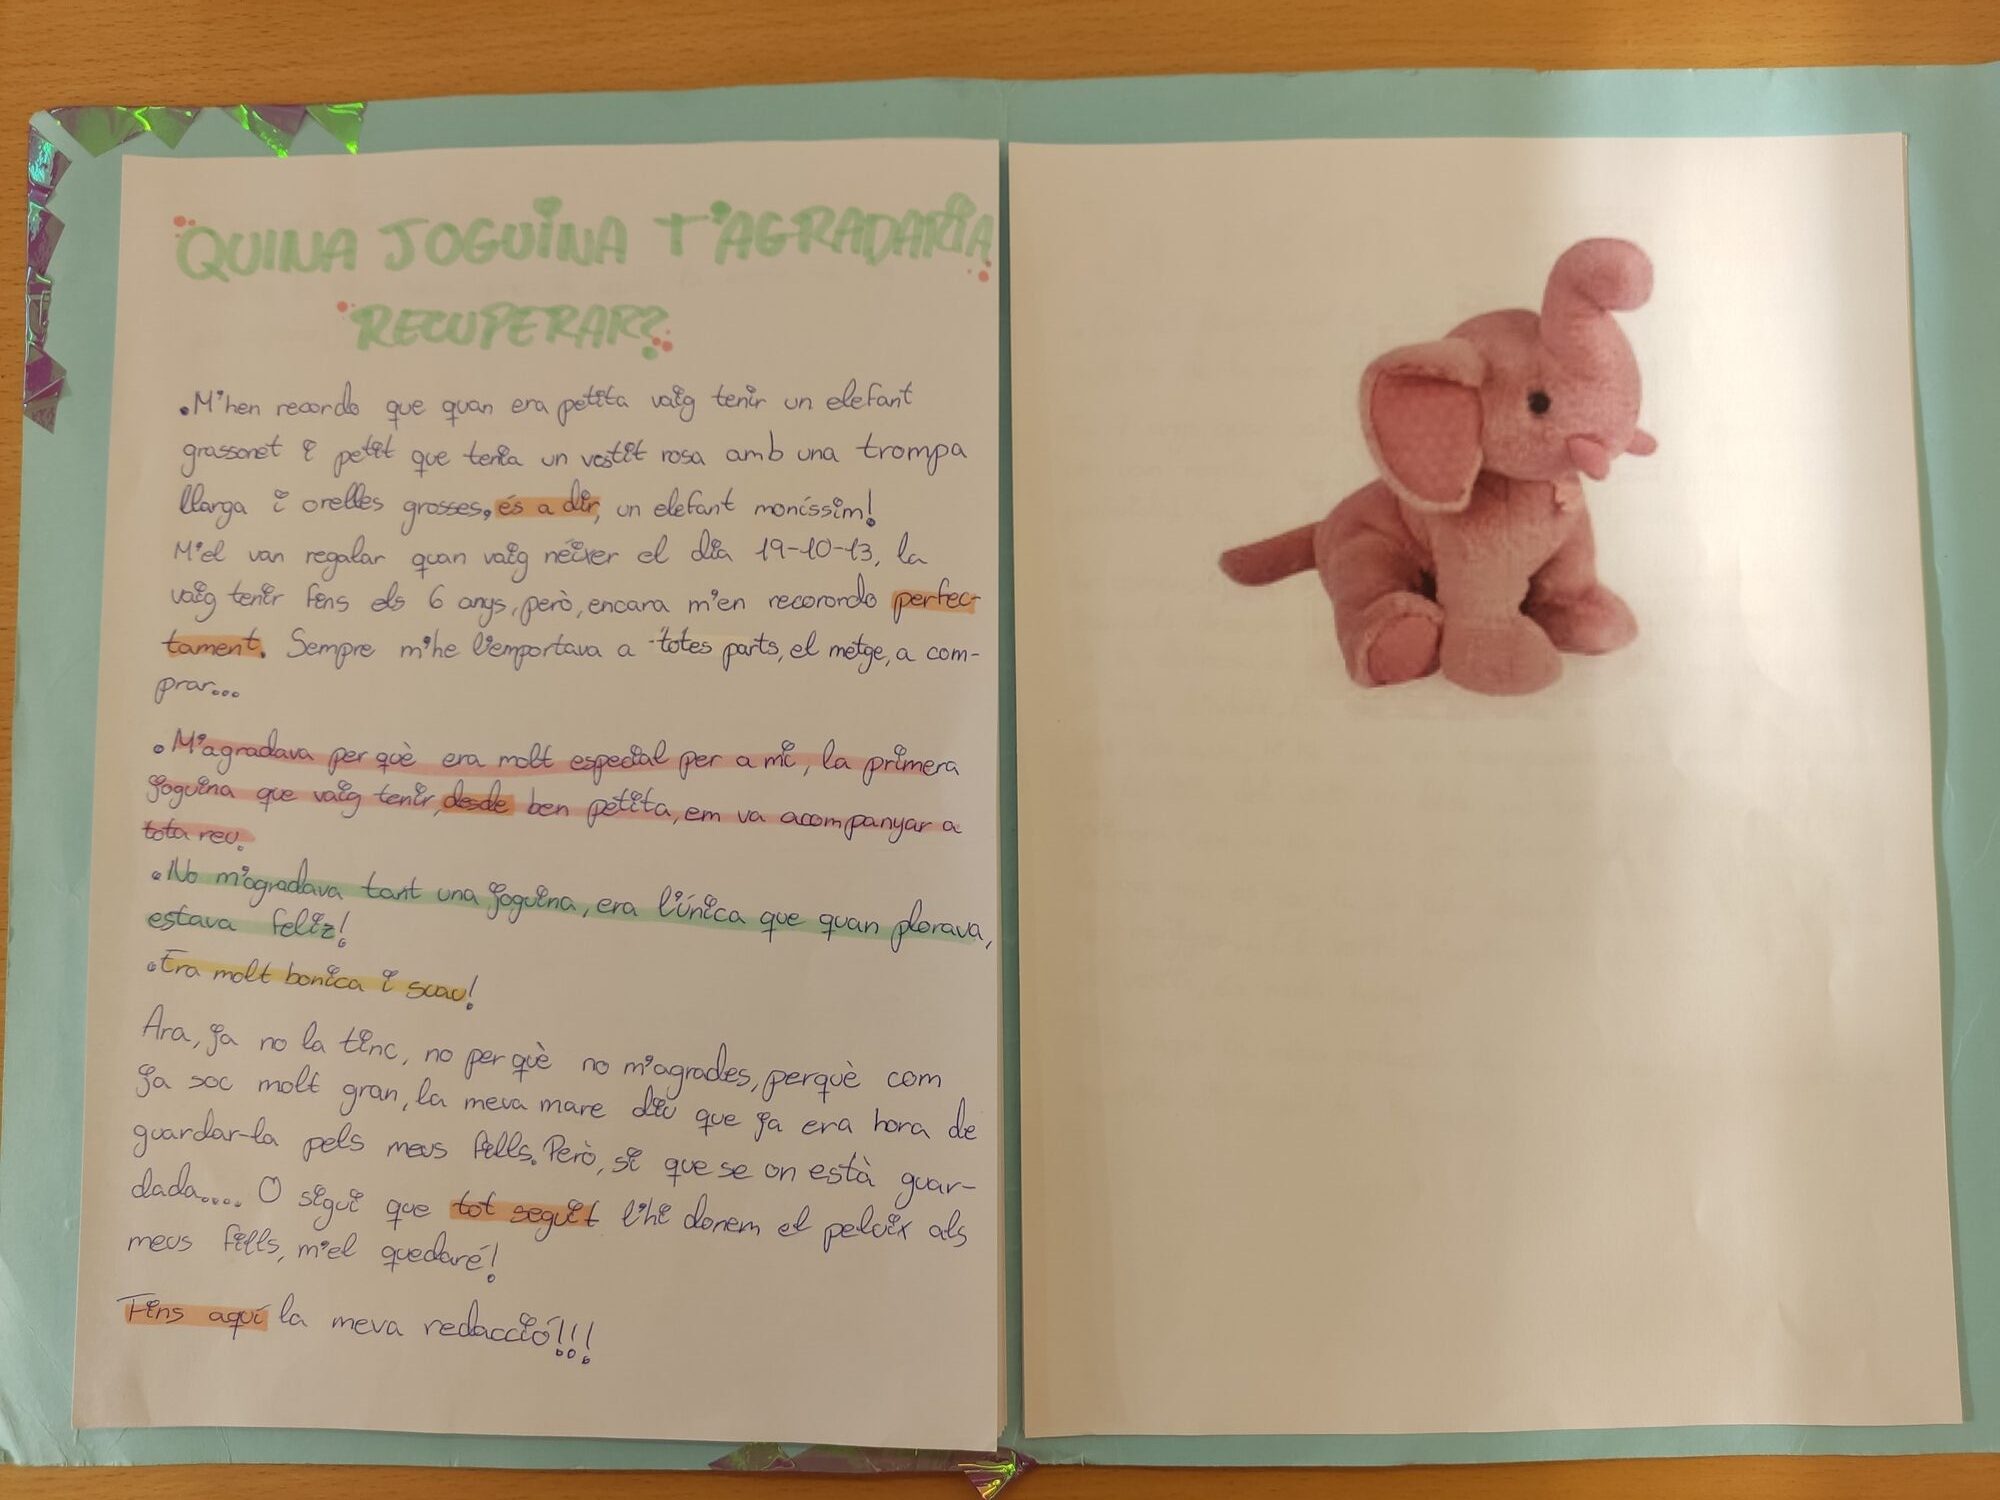 QUINA JOGUINA T'AGRADARIA
RECUPERAR?
•M'hen recordo que quan era petita vaig tenir un elefant
grassonet i petit que tenia un vestit rosa amb una trompa
llarga i orelles grosses, és a dir, un elefant moníssim!
M'el van regalar quan vaig néixer el dia 19-10-13, la
vaig tenir fins els 6 anys, però, encara m'en recorordo perfec-
tament. Sempre m'he l'emportava a totes parts, el metge, a com-
prar...
•M'agradava per què era molt especial per a mi, la primera
joguina que vaig tenir, desde ben petita, em va acompanyar a
tota reu.
•No m'agradava tant una joguina, era l'única que quan plorava,
estava feliz!
•Era molt bonica i suau!
Ara, ja no la tinc, no per què no m'agrades, perquè com
ja soc molt gran, la meva mare diu que ja era hora de
guardar-la pels meus fills. Però, si que se on està guar-
dada.... O sigui que tot seguit l'hi donem el peluix als
meus fills, m'el quedaré!
Fins aquí la meva redacció!!!